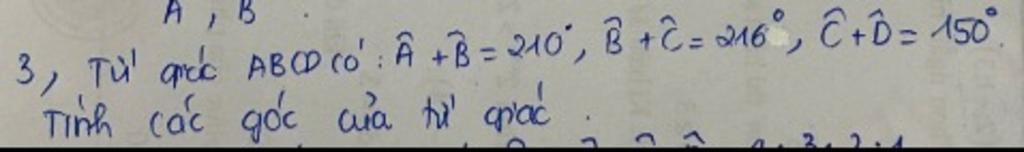 A , B .
3, Tứ giác ABCD có : Â + B̂ = 210°, B̂ + Ĉ = 216°, Ĉ + D̂ = 150°.
Tính các góc của tứ giác .